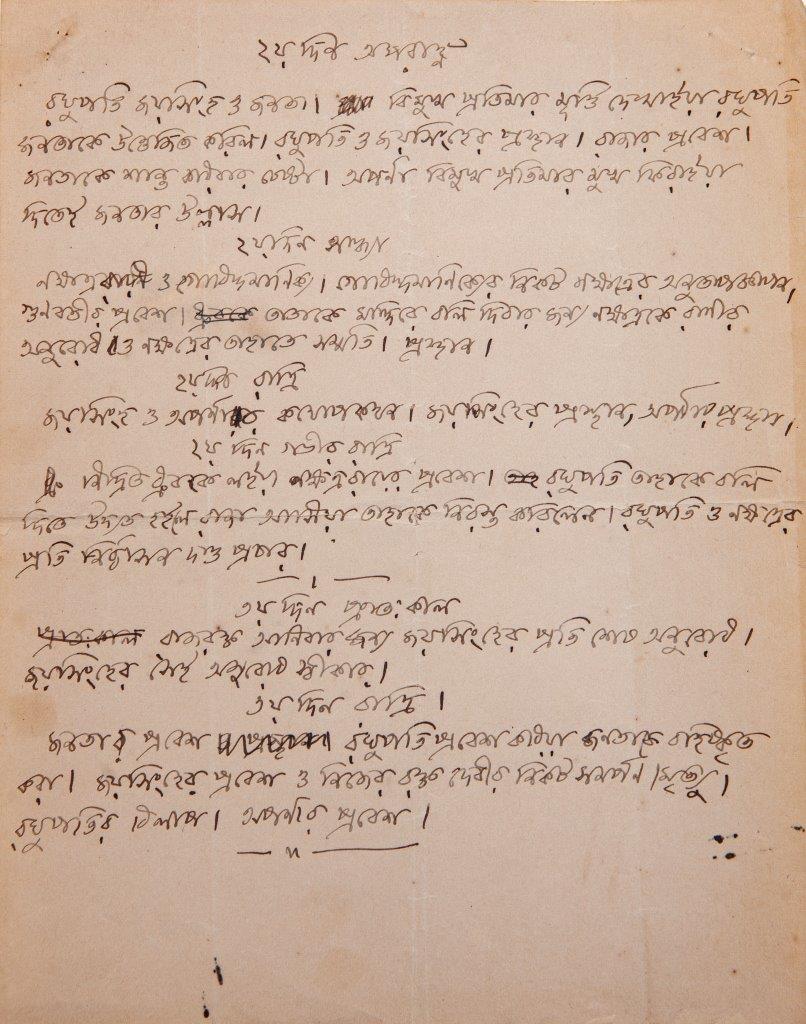 ২য় দিন অপরাহ্ণ
রঘুপতি জয়সিংহ ও জনতা। বিমুখ প্রতিমার মূর্ত্তি দেখাইয়া রঘুপতি
জনতাকে উত্তেজিত করিল। রঘুপতি ও জয়সিংহের প্রস্থান। রাজার প্রবেশ।
জনতাকে শান্ত করিবার চেষ্টা। অপর্ণা বিমুখ প্রতিমার মুখ ফিরাইয়া
দিতেই জনতার উল্লাস।
২য় দিন সন্ধ্যা
নক্ষত্ররায় ও গোবিন্দমানিক্য। গোবিন্দমানিক্যের নিকট নক্ষত্রের
গুণবতীর প্রবেশ। তাতাকে মন্দিরে বলি দিবার জন্য নক্ষত্রকে রাণীর
অনুরোধ ও নক্ষত্রের তাহাতে সম্মতি। প্রস্থান।
২য় দিন রাত্রি
জয়সিংহ ও অপর্ণার কথোপকথন। জয়সিংহের প্রস্থান, অপর্ণার প্রস্থান।
২য় দিন গভীর রাত্রি
নিদ্রিত ধ্রুবকে লইয়া নক্ষত্ররায়ের প্রবেশ। রঘুপতি তাহাকে বলি
দিতে উদ্যত হইলে রাজা আসিয়া তাহাকে নিরস্ত করিলেন। রঘুপতি ও নক্ষত্রের
প্রতি নির্ব্বাসন দণ্ড প্রচার।
৩য় দিন প্রাতঃকাল
প্রাতঃকাল রাজরক্ত আনিবার জন্য জয়সিংহের প্রতি শেষ অনুরোধ।
জয়সিংহের সেই অনুরোধ স্বীকার।
৩য় দিন রাত্রি।
জনতার প্রবেশ ও প্রস্থান। রঘুপতি প্রবেশ করিয়া জনতাকে বহিষ্কৃত
করা। জয়সিংহের প্রবেশ ও নিজের রক্ত দেবীর নিকট সমর্পন। মৃত্যু।
রঘুপতির বিলাপ। অপর্ণার প্রবেশ।